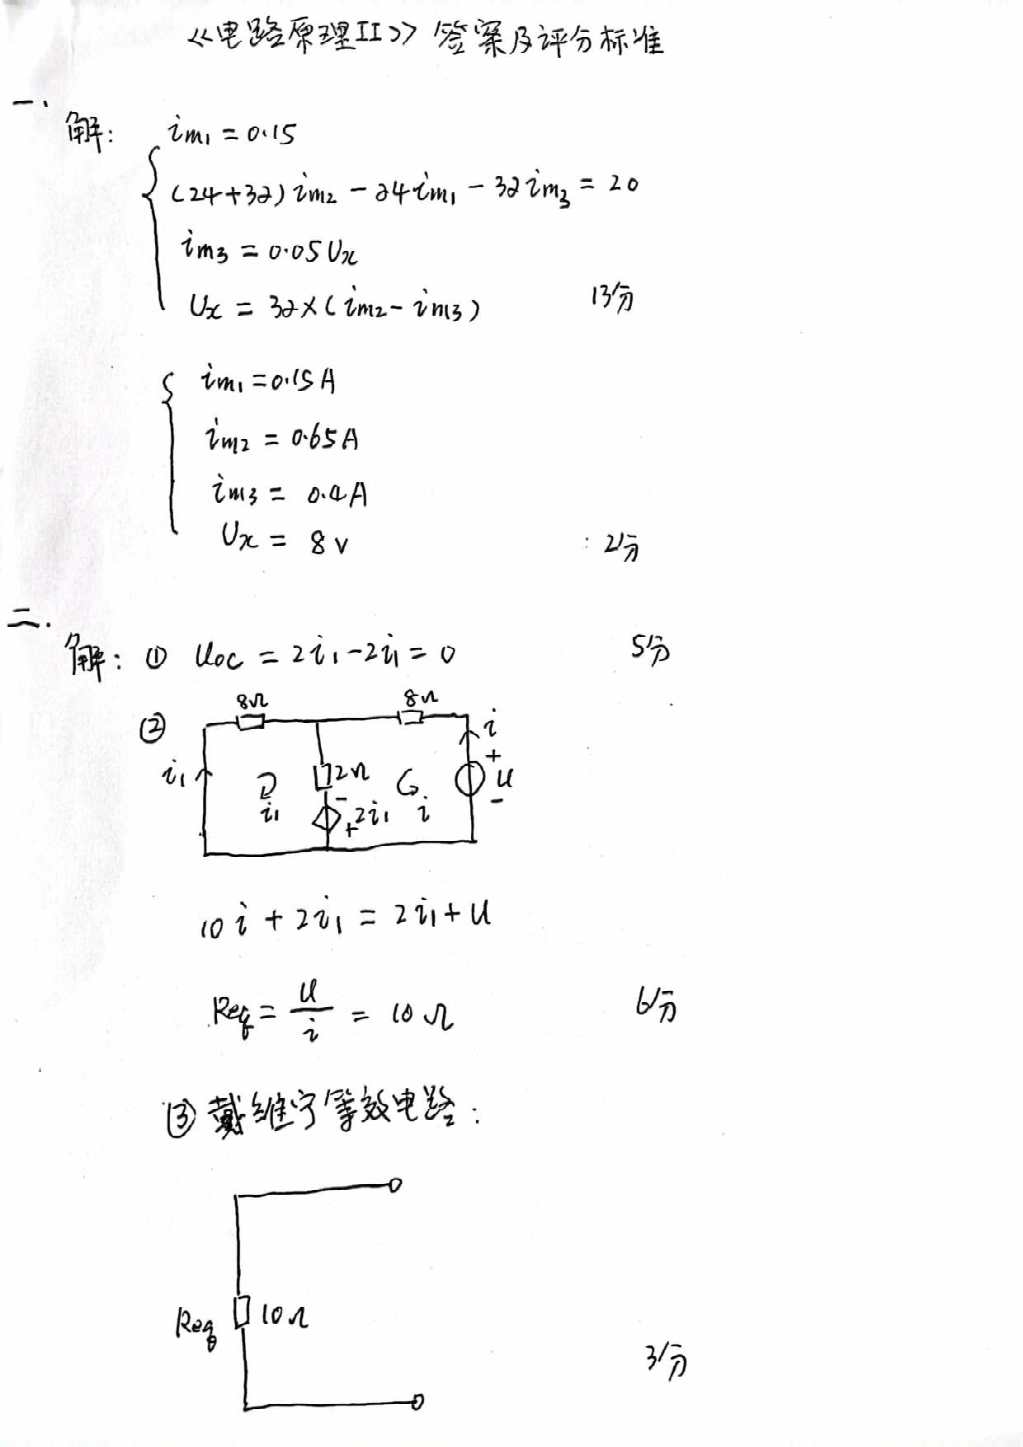 《电路原理II》答案及评分标准
一、
解: im1 = 0.15
(24+32) im2 - 24 im1 - 32 im3 = 20
im3 = 0.05 Ux
Ux = 32×(im2 - im3) 13分
im1 = 0.15A
im2 = 0.65A
im3 = 0.4A
Ux = 8v : 2分
二.
解: ① Uoc = 2i1 - 2i1 = 0 5分
②
8Ω 8Ω
i
i1 i1 2Ω i + u -
- 2i1 +
10i + 2i1 = 2i1 + u
Req = u/i = 10Ω 6分
③ 戴维宁等效电路:
Req 10Ω
3分